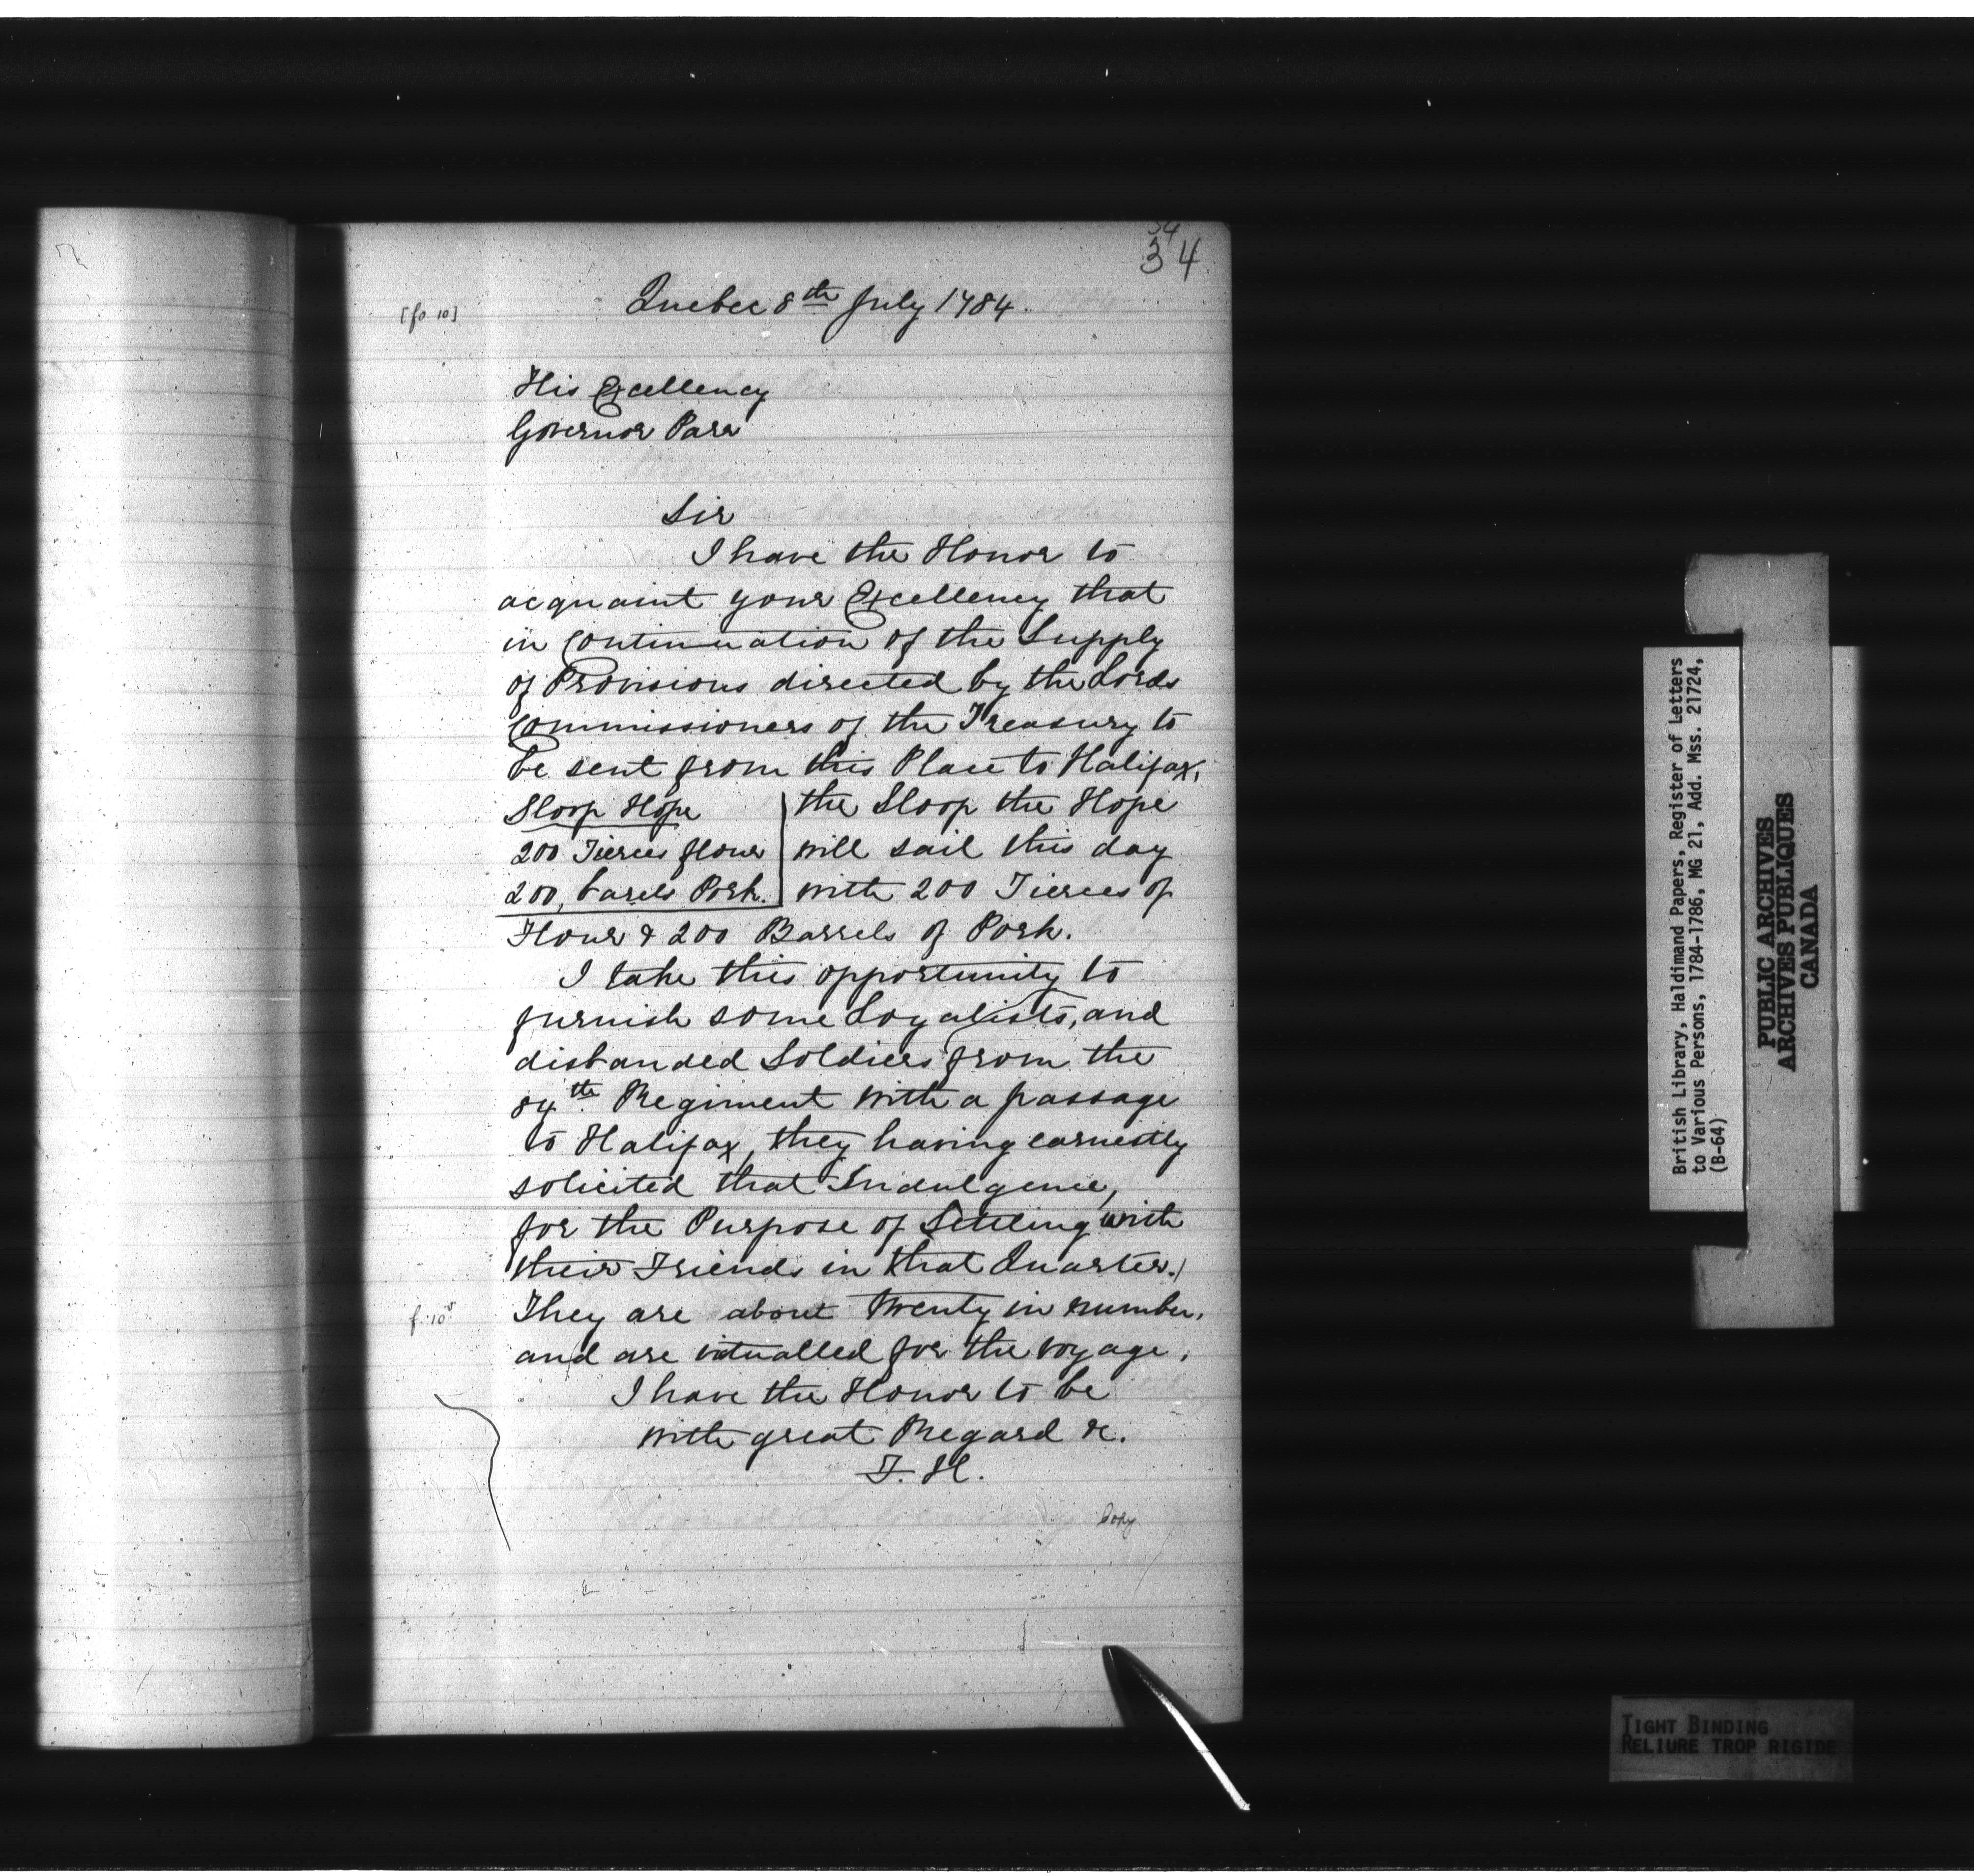 34
34
Quebec 8th July 1784.
[fo 10]
His Excellency
Governor Parr
Sir
I have the Honor to
acquaint your Excellency that
in Continuation of the Supply
of Provisions directed by the Lords
Commissioners of the Treasury to
be sent from this Place to Halifax,
Sloop Hope
200 Tierces flour
200, barels Pork.
the Sloop the Hope
will sail this day
with 200 Tierces of
Flour & 200 Barrels of Pork.
I take this opportunity to
furnish some Loyalists, and
disbanded Soldiers from the
84th Regiment with a passage
to Halifax, they having earnestly
solicited that Indulgence,
for the Purpose of Settling with
their Friends in that Quarter.
f. 10v
They are about twenty in number,
and are victualled for the voyage.
I have the Honor to be
with great Regard &c.
F. H.
Copy
British Library, Haldimand Papers, Register of Letters
to Various Persons, 1784-1786, MG 21, Add. Mss. 21724,
(B-64)
PUBLIC ARCHIVES
ARCHIVES PUBLIQUES
CANADA
TIGHT BINDING
RELIURE TROP RIGIDE